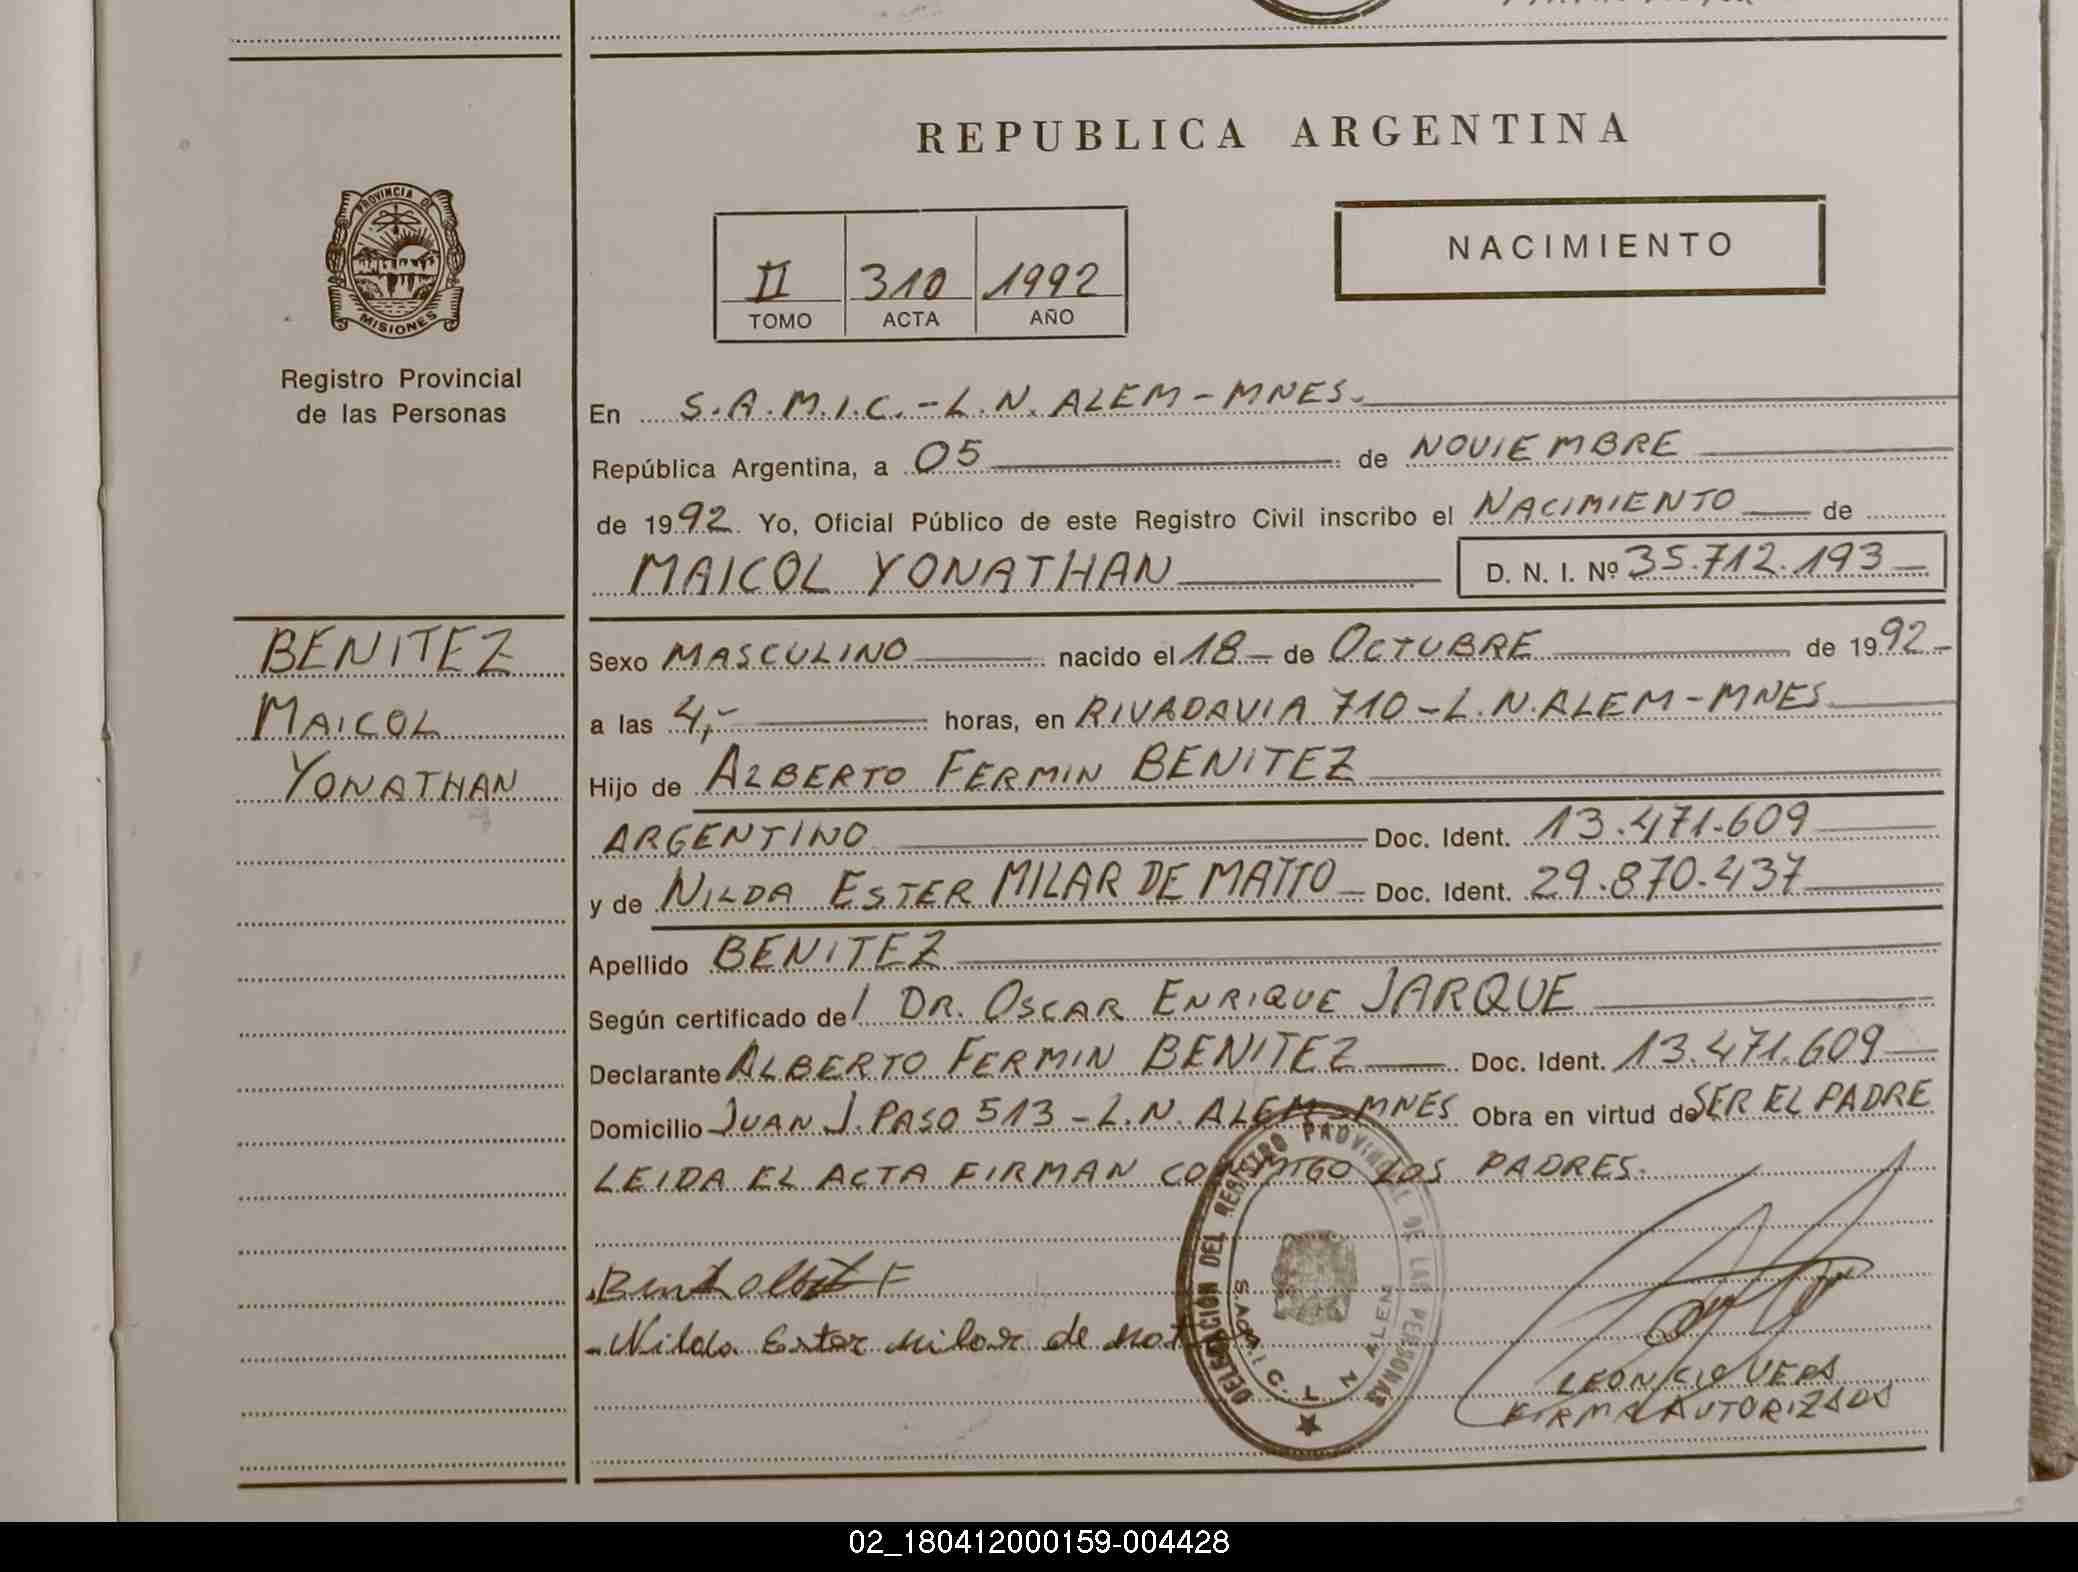 REPUBLICA ARGENTINA
PROVINCIA DE
MISIONES
Registro Provincial
de las Personas
NACIMIENTO
II 310 1992
TOMO ACTA AÑO
En S.A.M.I.C. - L.N. ALEM - MNES.
República Argentina, a 05 de NOVIEMBRE
de 1992. Yo, Oficial Público de este Registro Civil inscribo el NACIMIENTO de
MAICOL YONATHAN D. N. I. Nº 35.712.193
BENITEZ
MAICOL
YONATHAN
Sexo MASCULINO nacido el 18 de OCTUBRE de 1992
a las 4,- horas, en RIVADAVIA 710 - L.N. ALEM - MNES
Hijo de ALBERTO FERMIN BENITEZ
ARGENTINO Doc. Ident. 13.471.609
y de NILDA ESTER MILAR DE MATTO Doc. Ident. 29.870.437
Apellido BENITEZ
Según certificado del DR. OSCAR ENRIQUE JARQUE
Declarante ALBERTO FERMIN BENITEZ Doc. Ident. 13.471.609
Domicilio JUAN J. PASO 513 - L.N. ALEM - MNES Obra en virtud de SER EL PADRE
LEIDA EL ACTA FIRMAN CONMIGO LOS PADRES.
DELEGACIÓN DEL REGISTRO PROVINCIAL DE LAS PERSONAS
S.A.M.I.C. L. N. ALEM
Nilda Ester Milar de Mat
LEONCIO VERA
FIRMA AUTORIZADA
02_180412000159-004428